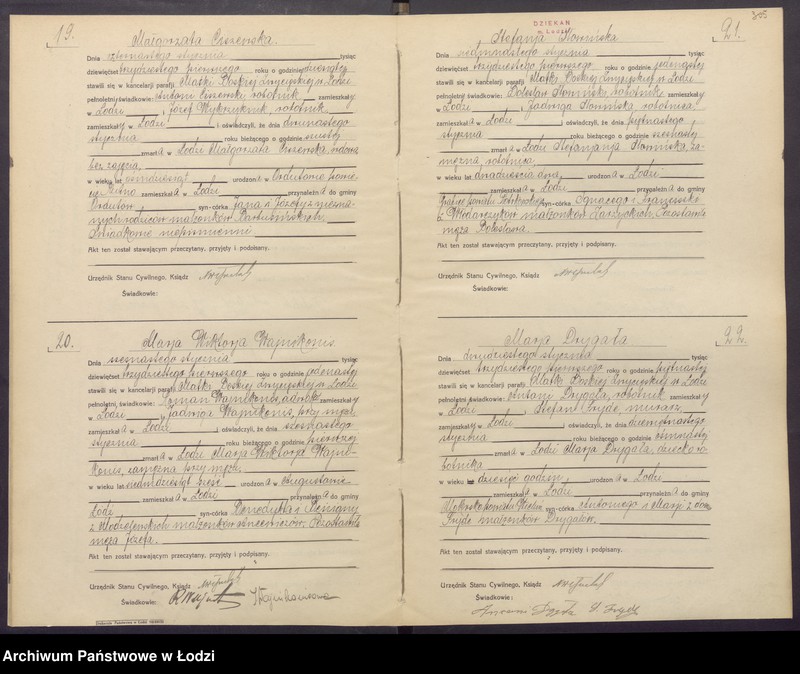 19.
Małgorzata Ciszewska.
Dnia czternastego stycznia tysiąc
dziewięćset trzydziestego pierwszego roku o godzinie dziesiątej
stawili się w kancelarji parafji Matki Boskiej Zwycięskiej w Łodzi
pełnoletni świadkowie: Antoni Ciszewski, robotnik zamieszkały
w Łodzi i Józef robotnik,
zamieszkały w Łodzi i oświadczyli, że dnia dwunastego
stycznia roku bieżącego o godzinie szóstej
zmarła w Łodzi Małgorzata Ciszewska, wdowa
bez zajęcia,
w wieku lat osiemdziesiąt urodzona w
zamieszkała w Łodzi przynależna do gminy
syn-córka Jana i Józefy z niezna-
nych rodziców małżonków
Świadkowie niepiśmienni
Akt ten został stawającym przeczytany, przyjęty i podpisany.
Urzędnik Stanu Cywilnego, Ksiądz
Świadkowie:
20.
Marja Wiktorja Wajnikonis.
Dnia szesnastego stycznia tysiąc
dziewięćset trzydziestego pierwszego roku o godzinie jedenastej
stawili się w kancelarji parafji Matki Boskiej Zwycięskiej w Łodzi
pełnoletni świadkowie: Roman Wajnikonis, zamieszkały
w Łodzi i Jadwiga Wajnikonis, przy mężu,
zamieszkała w Łodzi i oświadczyli, że dnia szesnastego
stycznia roku bieżącego o godzinie pierwszej
zmarła w Łodzi Marja Wiktorja Wajni-
konis, zamężna przy mężu
w wieku lat siedmdziesiąt sześć urodzona w
zamieszkała w Łodzi przynależna do gminy
Łódź syn-córka Benedykta i
z małżonków Pozostawiła
męża Józefa.
Akt ten został stawającym przeczytany, przyjęty i podpisany.
Urzędnik Stanu Cywilnego, Ksiądz
Świadkowie:
DZIEKAN
m. Łodzi
21.
Stefanja Słomińska
Dnia siedmnastego stycznia tysiąc
dziewięćset trzydziestego pierwszego roku o godzinie jedenastej
stawili się w kancelarji parafji Matki Boskiej Zwycięskiej w Łodzi
pełnoletni świadkowie: Bolesław Słomiński, robotnik zamieszkały
w Łodzi i Jadwiga Słomińska, robotnica
zamieszkała w Łodzi i oświadczyli, że dnia piętnastego
stycznia roku bieżącego o godzinie szesnastej
zmarła w Łodzi Stefanja Słomińska, za-
mężna, robotnica
w wieku lat dwadzieścia dwa urodzona w Łodzi
zamieszkała w Łodzi przynależna do gminy
syn-córka Ignacego i Franciszki
z Włodarczyków małżonków Pozostawiła
męża Bolesława.
Akt ten został stawającym przeczytany, przyjęty i podpisany.
Urzędnik Stanu Cywilnego, Ksiądz
Świadkowie:
22.
Marja Drygała.
Dnia dwudziestego stycznia tysiąc
dziewięćset trzydziestego pierwszego roku o godzinie piętnastej
stawili się w kancelarji parafji Matki Boskiej Zwycięskiej w Łodzi
pełnoletni świadkowie: Antoni Drygała, robotnik zamieszkały
w Łodzi i Stefan Fryde, murarz,
zamieszkały w Łodzi i oświadczyli, że dnia dziewiętnastego
stycznia roku bieżącego o godzinie ósmnastej
zmarła w Łodzi Marja Drygała, dziecko ro-
botnika
w wieku dziesięć godzin, urodzona w Łodzi
zamieszkała w Łodzi przynależna do gminy
syn-córka Antoniego i Marji z domu
Fryde małżonków Drygałów.
Akt ten został stawającym przeczytany, przyjęty i podpisany.
Urzędnik Stanu Cywilnego, Ksiądz
Świadkowie:
Archiwum Państwowe w Łodzi